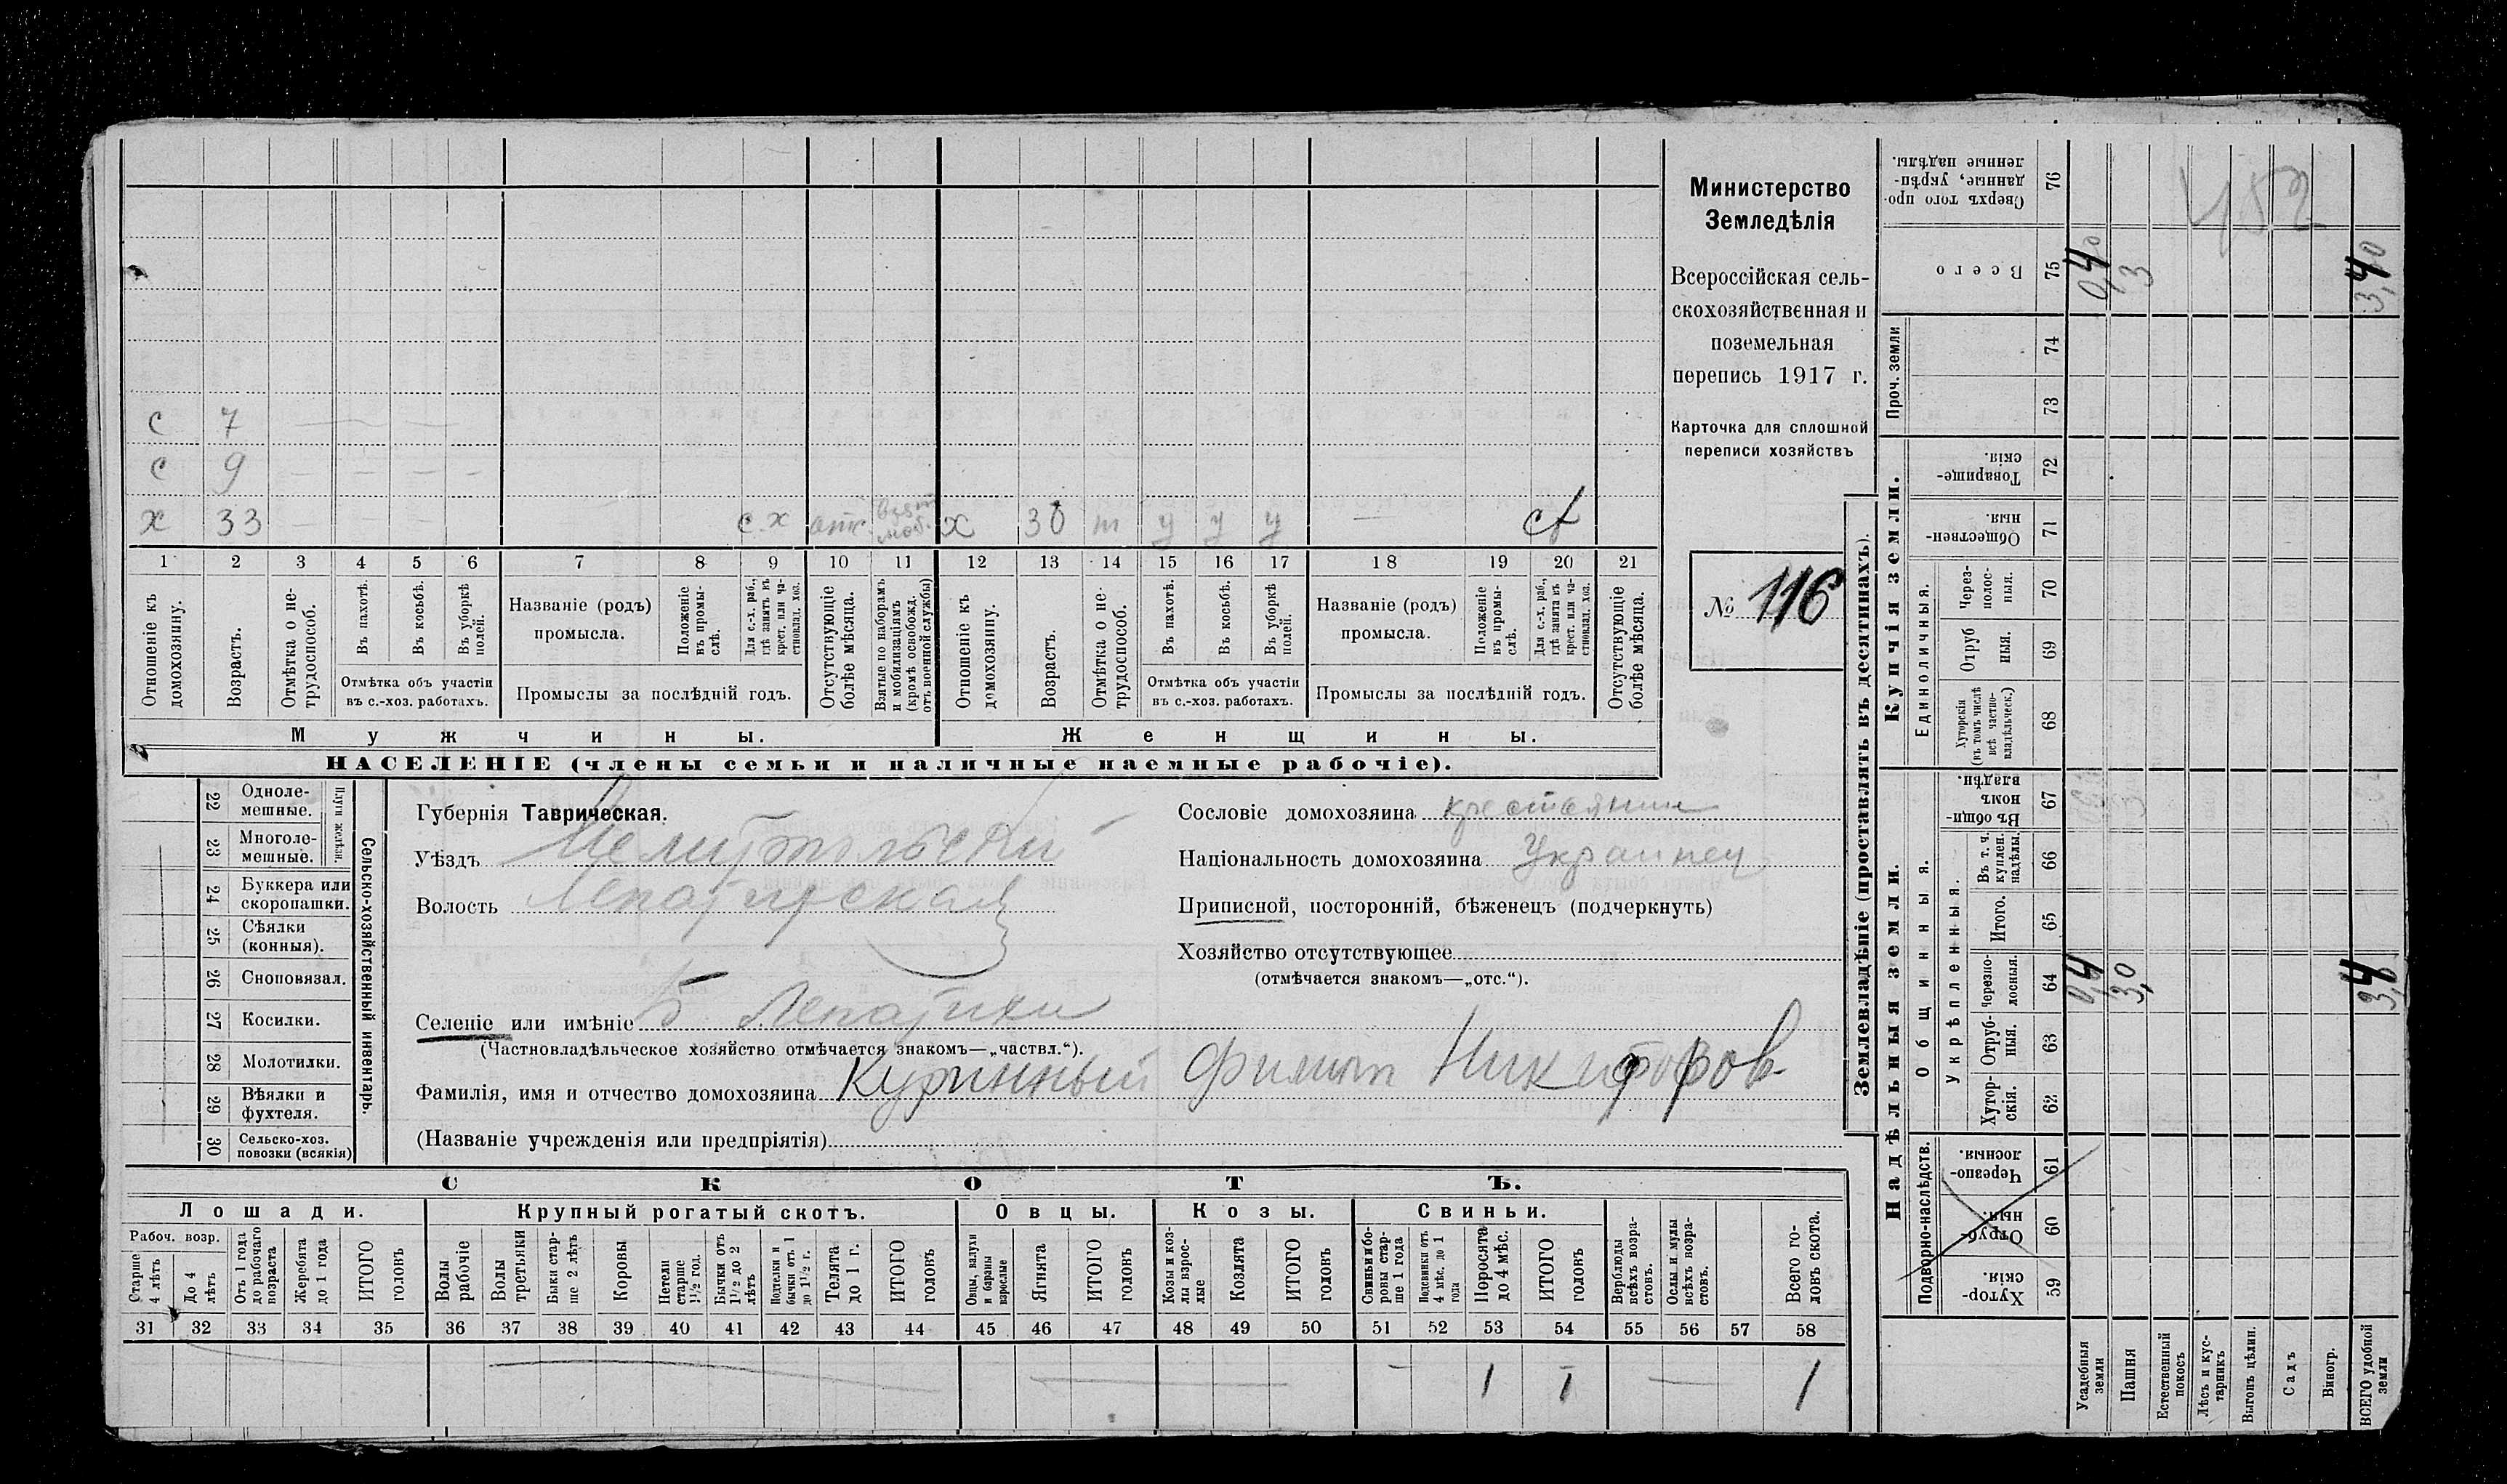 Министерство
Земледѣлія
Всероссійская сель-
скохозяйственная и
поземельная
перепись 1917 г.
Карточка для сплошной
переписи хозяйствъ
№ 116
с 7
с 9
х 33 с.х отс. взят моб. х 30 т у у у
1 2 3 4 5 6 7 8 9 10 11 12 13 14 15 16 17 18 19 20 21
Отношеніе къ домохозяину.
Возрастъ.
Отмѣтка о не-трудоспособ.
Въ пахотѣ.
Въ косьбѣ.
Въ уборкѣ полей.
Отмѣтка объ участіи
въ с.-хоз. работахъ.
Названіе (родъ)
промысла.
Положеніе въ промы-слѣ.
Для с.-х. раб., гдѣ занятъ въ крест. или ча-стновлад. хоз.
Промыслы за послѣдній годъ.
Отсутствующіе болѣе мѣсяца.
Взятые по наборамъ и мобилизаціямъ (кромѣ освобожд. отъ военной службы)
Отношеніе къ домохозяину.
Возрастъ.
Отмѣтка о не-трудоспособ.
Въ пахотѣ.
Въ косьбѣ.
Въ уборкѣ полей.
Отмѣтка объ участіи
въ с.-хоз. работахъ.
Названіе (родъ)
промысла.
Положеніе въ промы-слѣ.
Для с.-х. раб., гдѣ занята въ крест. или ча-стновлад. хоз.
Промыслы за послѣдній годъ.
Отсутствующіе болѣе мѣсяца.
Мужчины. Женщины.
НАСЕЛЕНІЕ (члены семьи и наличные наемные рабочіе).
Сельско-хозяйственный инвентарь.
Плуги желѣзн.
22 Одноле-мешные.
23 Многоле-мешные.
24 Буккера или скоропашки.
25 Сѣялки (конныя).
26 Сноповязал.
27 Косилки.
28 Молотилки.
29 Вѣялки и фухтеля.
30 Сельско-хоз. повозки (всякія)
Губернія Таврическая.
Уѣздъ Мелитопольский
Волость Лепатихская
Селеніе или имѣніе Б Лепатихи
(Частновладѣльческое хозяйство отмѣчается знакомъ—„частвл.“).
Фамилія, имя и отчество домохозяина Куринный Филипп Никифоров
(Названіе учрежденія или предпріятія)
Сословіе домохозяина крестьянин
Національность домохозяина Украинец
Приписной, посторонній, бѣженецъ (подчеркнуть)
Хозяйство отсутствующее
(отмѣчается знакомъ—„отс.“).
СКОТЪ.
Лошади. Крупный рогатый скотъ. Овцы. Козы. Свиньи.
Рабоч. возр.
Старше 4 лѣтъ
До 4 лѣтъ
Отъ 1 года до рабочаго возраста
Жеребята до 1 года
ИТОГО головъ
Волы рабочіе
Волы третьяки
Быки стар-ше 2 лѣтъ
Коровы
Нетели старше 1½ год.
Бычки отъ 1½ до 2 лѣтъ
Подтелки и бычки отъ 1 до 1½ г.
Телята до 1 г.
ИТОГО головъ
Овцы, валухи и бараны взрослые
Ягнята
ИТОГО головъ
Козы и коз-лы взрос-лые
Козлята
ИТОГО головъ
Свиньи и бо-ровы стар-ше 1 года
Подсвинки отъ 4 мѣс. до 1 года
Поросята до 4 мѣс.
ИТОГО головъ
Верблюды всѣхъ возра-стовъ.
Ослы и мулы всѣхъ возра-стовъ.
Всего го-ловъ скота.
31 32 33 34 35 36 37 38 39 40 41 42 43 44 45 46 47 48 49 50 51 52 53 54 55 56 57 58
1 1 1
Землевладѣніе (проставлять въ десятинахъ).
Купчія земли.
Надѣльныя земли.
Сверхъ того про-данные, укрѣп-ленные надѣлы. 76
Всего 75
Проч. земли 74 73
Товарище-скія. 72
Обществен-ныя. 71
Единоличныя.
Через-полос-ныя. 70
Отруб ныя. 69
Хуторскія (въ томъ числѣ всѣ частно-владѣльческ.) 68
Общинныя.
Въ общи-номъ владѣн. 67
Укрѣпленныя.
Въ т. ч. куплен. надѣлы. 66
Итого. 65
Черезпо-лосныя. 64
Отруб-ныя. 63
Хутор-скія. 62
Подворно-наслѣдств.
Черезпо-лосныя. 61
Отруб-ныя. 60
Хутор-скія. 59
Усадебныя земли
Пашня
Естественный покосъ
Лѣсъ и кус-тарникъ
Выгонъ цѣлин.
Садъ
Виногр.
ВСЕГО удобной земли
0,4 3 3,4
0,4 3,0 3,4
452